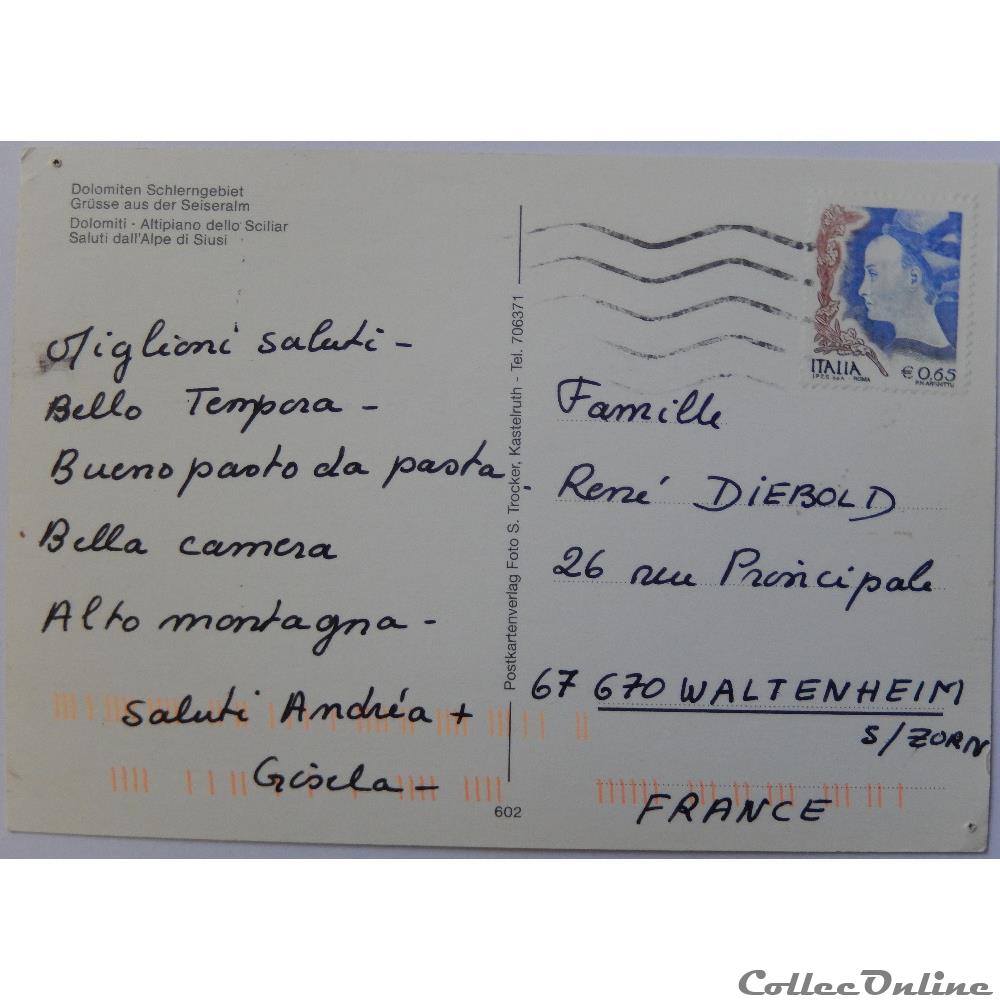 Dolomiten Schlerngebiet
Grüsse aus der Seiseralm
Dolomiti - Altipiano dello Sciliar
Saluti dall'Alpe di Siusi
Miglioni saluti -
Bello Tempora -
Bueno pasto da pasta -
Bella camera
Alto montagna -
Saluti Andréa +
Gisela -
Postkartenverlag Foto S. Trocker, Kastelruth - Tel. 706371
602
ITALIA
€ 0,65
I.P.Z.S. S.p.A. - ROMA
Famille
René DIEBOLD
26 rue Principale
67 670 WALTENHEIM
S/ZORN
FRANCE
CollecOnline